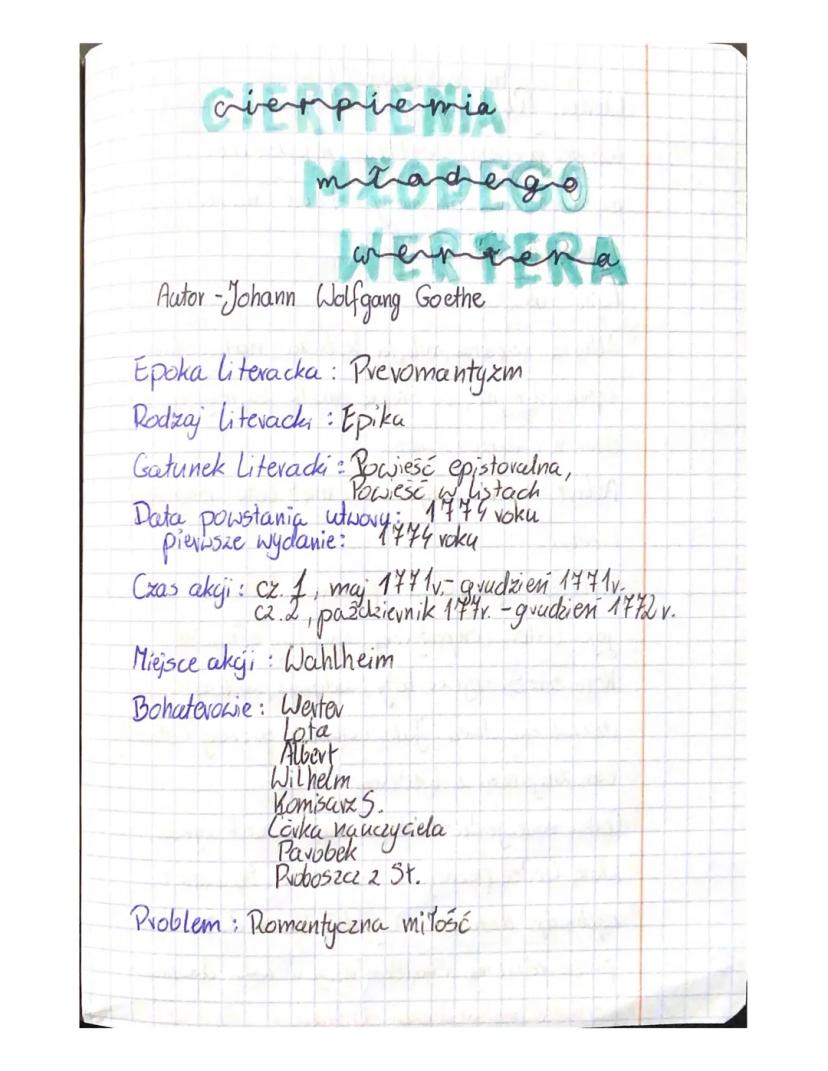 cierpienia
młodego
wertera
Autor - Johann Wolfgang Goethe
Epoka literacka : Preromantyzm
Rodzaj literacki : Epika
Gatunek Literacki : Powieść epistoralna,
Powieść w listach
Data powstania utworu: 1774 roku
pierwsze wydanie: 1774 roku
Czas akcji : cz. 1, maj 1771r. - grudzień 1771r.
cz.2, październik 177r. - grudzień 1772 r.
Miejsce akcji : Wahlheim
Bohaterowie : Werter
Lota
Albert
Wilhelm
Komisarz S.
Córka nauczyciela
Parobek
Proboszcz z St.
Problem : Romantyczna miłość